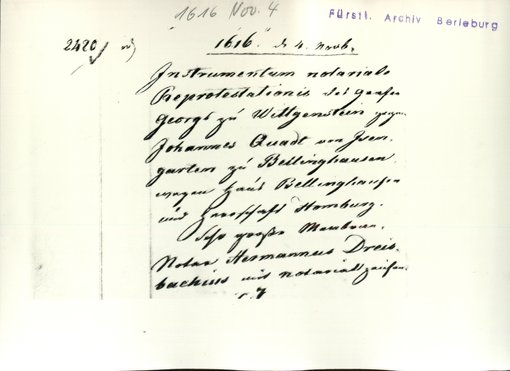 1616 Nov. 4
Fürstl. Archiv Berleburg
2420
1616 d. 4. Novb.
Instrumentum notariale
Reprotestationis des Grafen
Georgs zu Wittgenstein gegen
Johannes Quadt von Isen-
garten zu Bellinghausen
wegen Haus Bellinghausen
und Herrschaft Homburg.
Sehr große Membran.
Notar Hermannus Dreis-
bachius mit notariatzeichen.